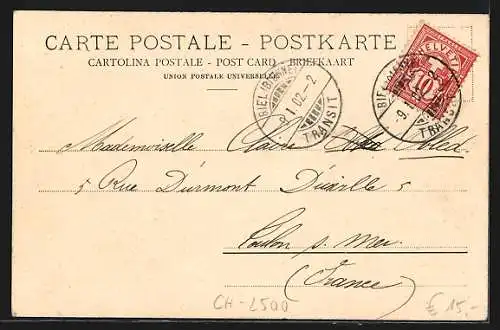 CARTE POSTALE - POSTKARTE
CARTOLINA POSTALE - POST CARD - BRIEFKAART
UNION POSTALE UNIVERSELLE
HELVETIA
10
BIEL (BIENNE)
8.I.02-2
TRANSIT
BIEL (BIENNE)
TRANSIT
Mademoiselle Claire
5 Rue Durmont Durville 5
Toulon s. Mer
(France)
CH-2500
€ 15,-